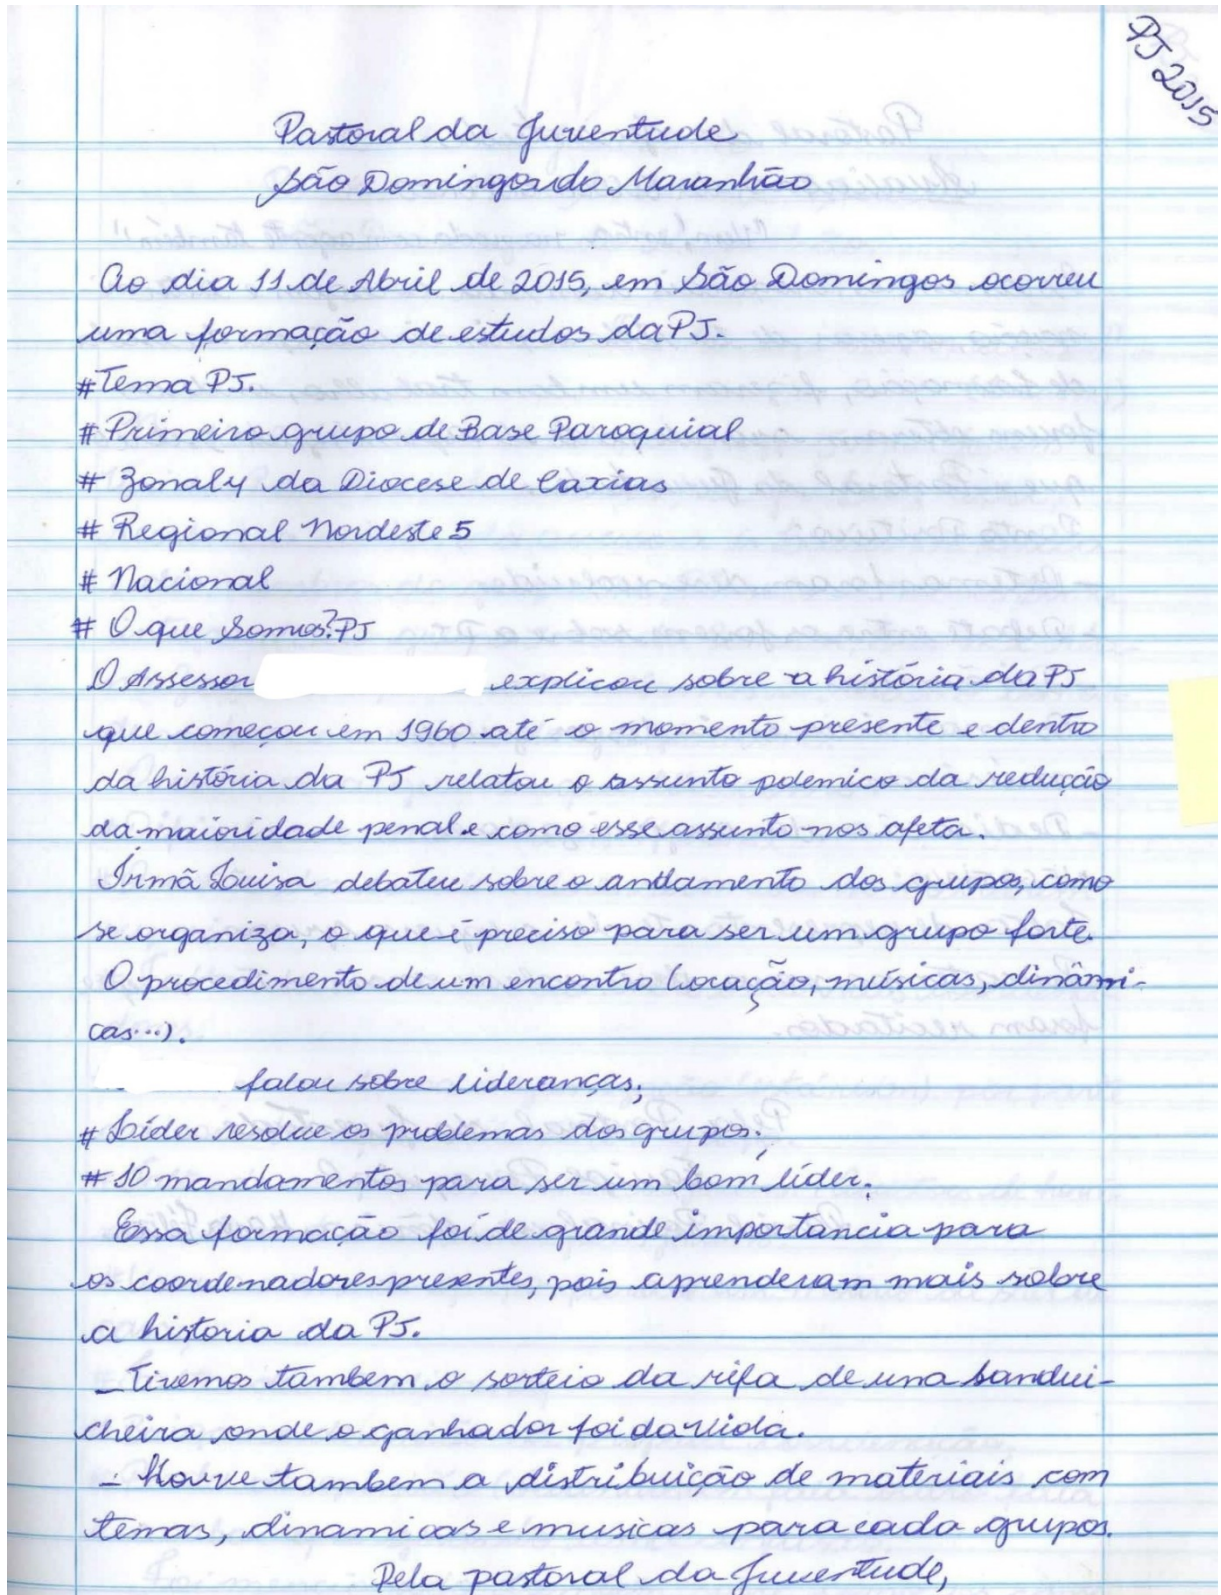 PJ 2015
Pastoral da Juventude
São Domingos do Maranhão
Ao dia 11 de Abril de 2015, em São Domingos ocorreu
uma formação de estudos da PJ.
# Tema PJ.
# Primeiro grupo de Base Paroquial
# Zonal 4 da Diocese de Caxias
# Regional Nordeste 5
# Nacional
# O que Somos? PJ
O Assessor explicou sobre a história da PJ
que começou em 1960 até o momento presente e dentro
da história da PJ relatou o assunto polemico da redução
da maioridade penal e como esse assunto nos afeta.
Irmã Louisa debateu sobre o andamento dos grupos, como
se organiza, o que é preciso para ser um grupo forte.
O procedimento de um encontro (oração, músicas, dinâmi-
cas...).
falou sobre lideranças;
# Líder resolve os problemas dos grupos;
# 10 mandamentos para ser um bom líder.
Essa formação foi de grande importancia para
os coordenadores presentes, pois aprenderam mais sobre
a historia da PJ.
- Tivemos tambem o sorteio da rifa de una sandui-
cheira onde o ganhador foi da
- Houve tambem a distribuição de materiais com
temas, dinamicas e musicas para cada grupos.
Pela pastoral da Juventude,